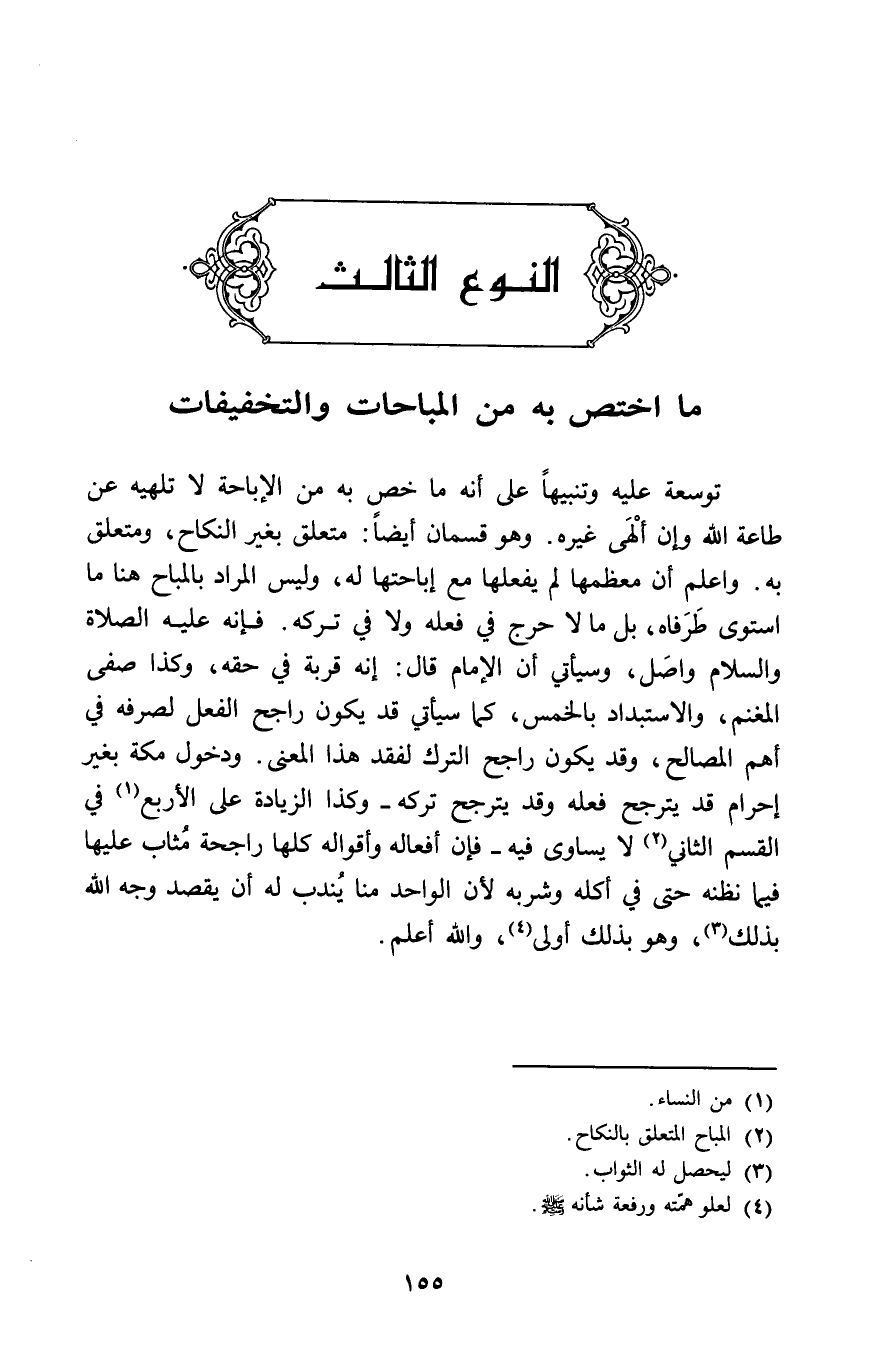 النوع الثالث
ما اختص به من المباحات والتخفيفات
توسعة عليه وتنبيهاً على أنه ما خص به من الإباحة لا تلهيه عن
طاعة الله وإن ألْهَى غيره. وهو قسمان أيضاً: متعلق بغير النكاح، ومتعلق
به. واعلم أن معظمها لم يفعلها مع إباحتها له، وليس المراد بالمباح هنا ما
استوى طَرَفاه، بل ما لا حرج في فعله ولا في تركه. فإنه عليه الصلاة
والسلام واصَل، وسيأتي أن الإمام قال: إنه قربة في حقه، وكذا صفى
المغنم، والاستبداد بالخمس، كما سيأتي قد يكون راجح الفعل لصرفه في
أهم المصالح، وقد يكون راجح الترك لفقد هذا المعنى. ودخول مكة بغير
إحرام قد يترجح فعله وقد يترجح تركه ـ وكذا الزيادة على الأربع(١) في
القسم الثاني(٢) لا يساوى فيه ـ فإن أفعاله وأقواله كلها راجحة مُثاب عليها
فيما نظنه حتى في أكله وشربه لأن الواحد منا يُندب له أن يقصد وجه الله
بذلك(٣)، وهو بذلك أولى(٤)، والله أعلم.
(١) من النساء.
(٢) المباح المتعلق بالنكاح.
(٣) ليحصل له الثواب.
(٤) لعلو همّته ورفعة شأنه ﷺ.
١٥٥